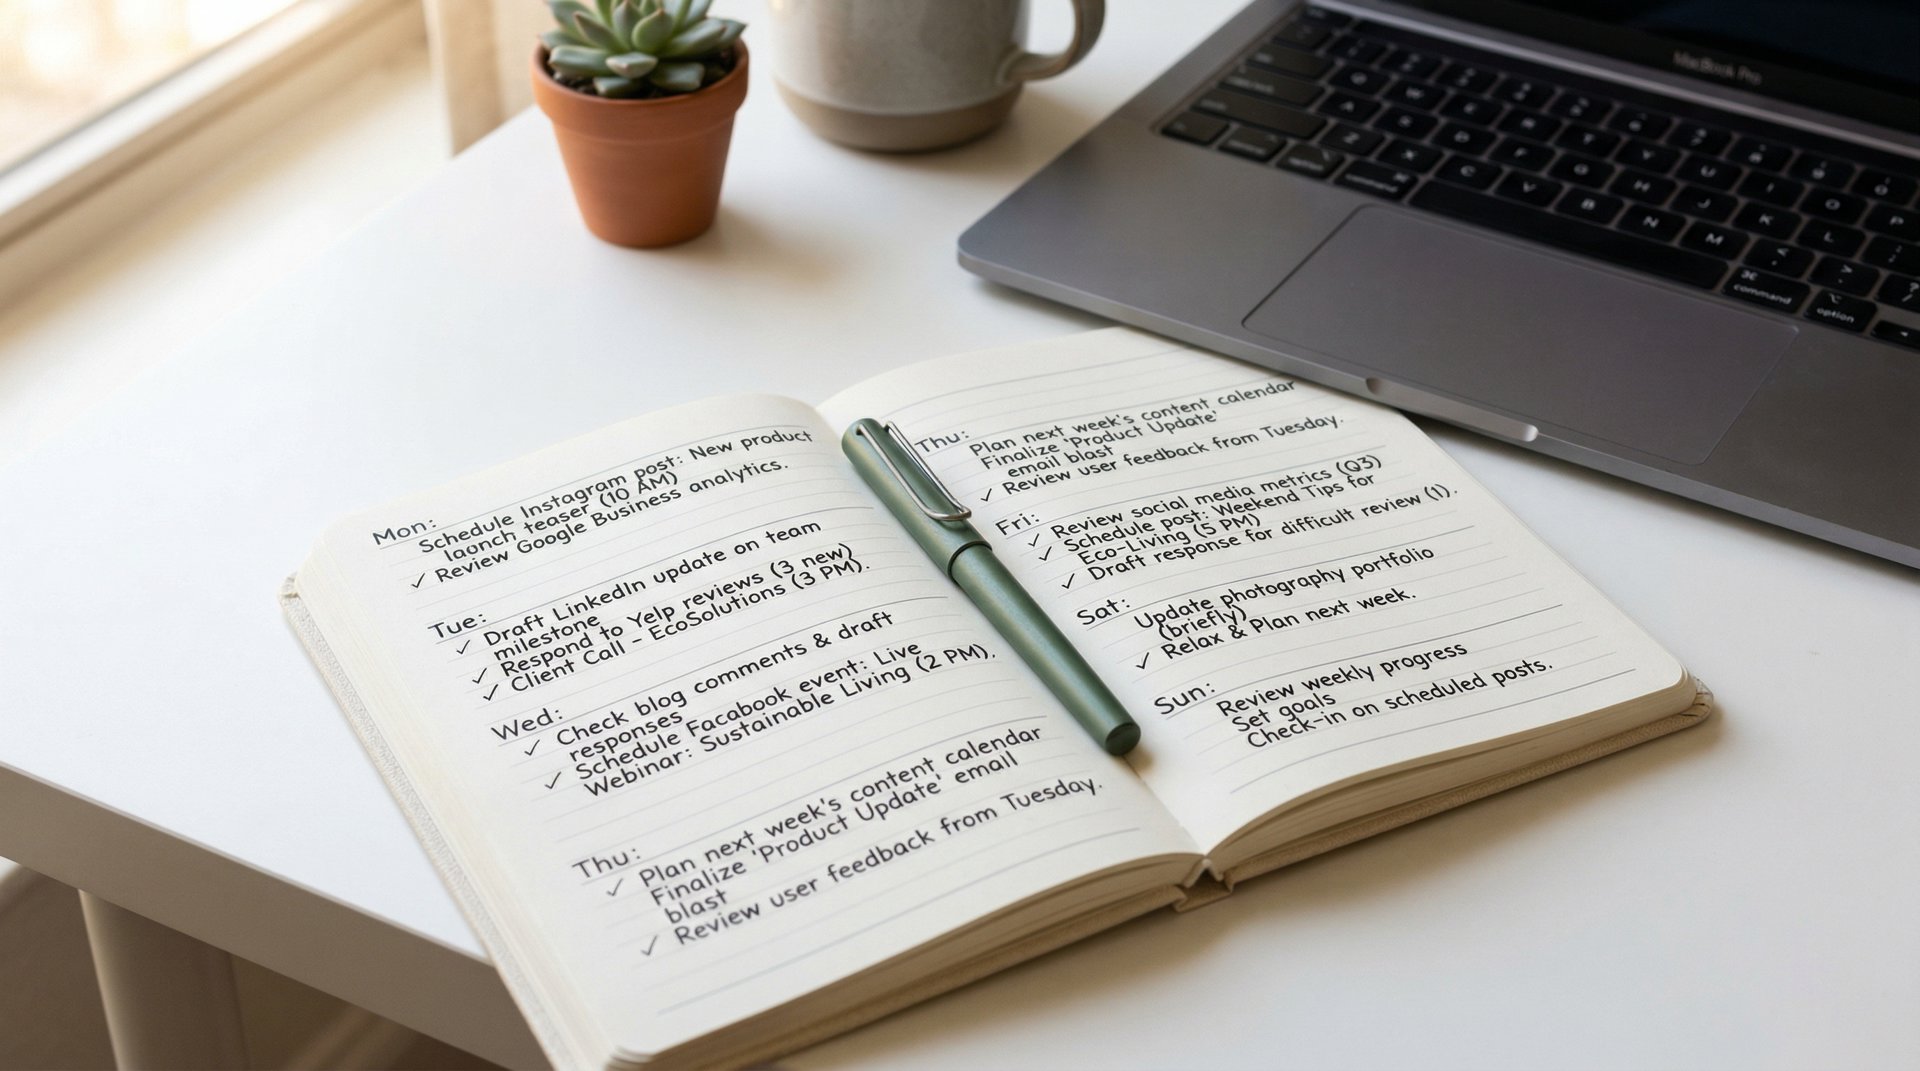 Mon:
Schedule Instagram post: New product
launch teaser (10 AM)
✓ Review Google Business analytics.
Tue:
✓ Draft LinkedIn update on team
milestone
✓ Respond to Yelp reviews (3 new)
✓ Client Call - EcoSolutions (3 PM).
Wed:
✓ Check blog comments & draft
responses
✓ Schedule Facabook event: Live
Webinar: Sustainable Living (2 PM).
Thu:
✓ Plan next week's content calendar
Finalize 'Product Update' email
blast
✓ Review user feedback from Tuesday.
Thu:
Plan next week's content calendar
Finalize 'Product Update'
email blast
✓ Review user feedback from Tuesday.
Fri:
✓ Review social media metrics (Q3)
✓ Schedule post: Weekend Tips for
Eco-Living (5 PM)
✓ Draft response for difficult review (1).
Sat:
Update photography portfolio
(briefly)
✓ Relax & Plan next week.
Sun:
Review weekly progress
Set goals
Check-in on scheduled posts.
MacBook Pro
command
command
option